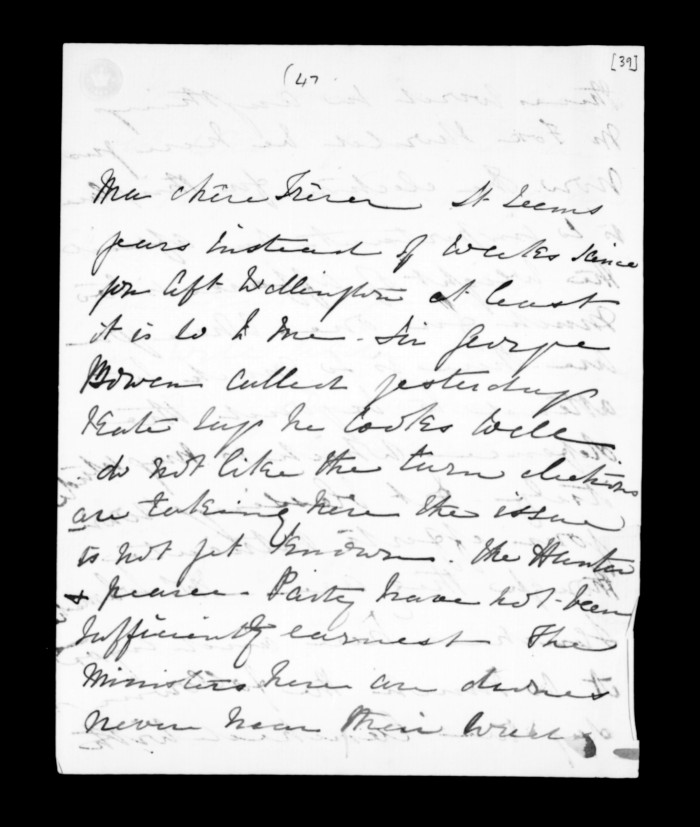 (47
[39]
Mon chère Frère It seems
years instead of weeks since
you left Wellington at least
it is so to me - Sir George
Bowen called yesterday
Kate says he looks well
do not like the turn elections
are taking here the issue
is not yet known. The Hunter
& pearce - Party have not been
sufficiently earnest The
Ministers here are
never hear their